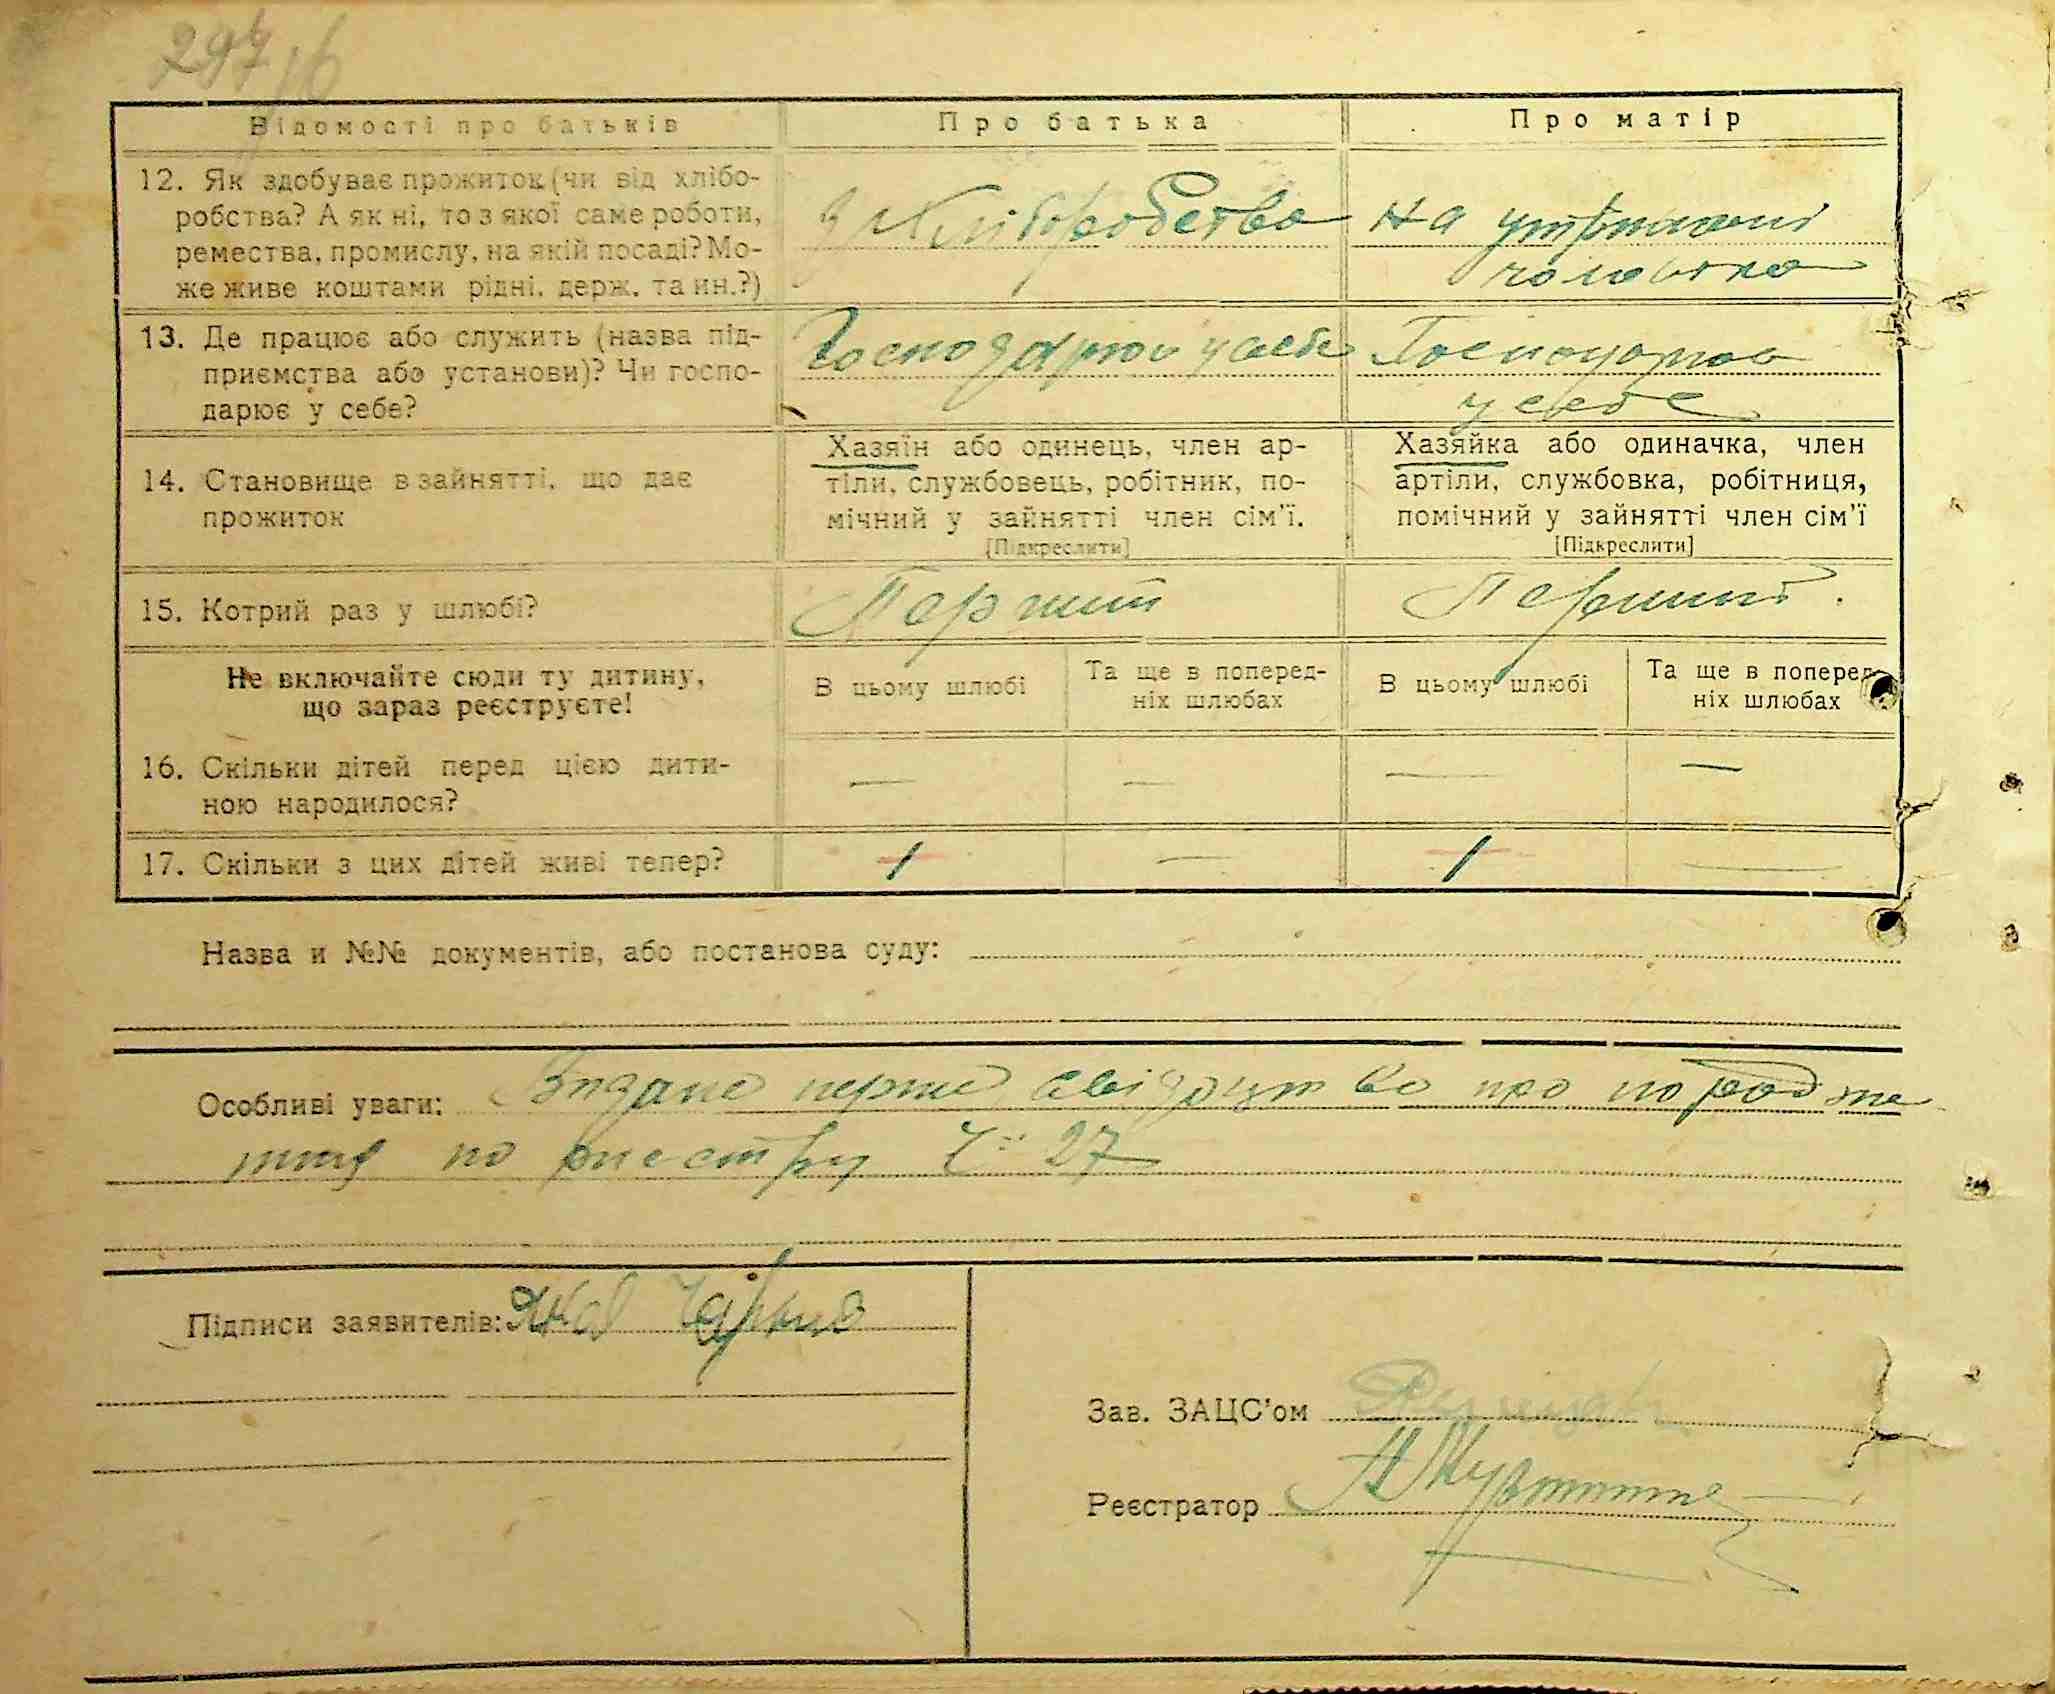 Відомості про батьків Про батька Про матір
12. Як здобуває прожиток (чи від хлібо-
робства? А як ні, то з якої саме роботи,
ремества, промислу, на якій посаді? Мо-
же живе коштами рідні, держ. та ин.?)
з Хліборобства
на утриманні
чоловіка
13. Де працює або служить (назва під-
приємства або установи)? Чи госпо-
дарює у себе?
Господарює у себе
Господарює
у себе
14. Становище в зайнятті, що дає
прожиток
Хазяїн або одинець, член ар-
тіли, службовець, робітник, по-
мічний у зайнятті член сім'ї.
[Підкреслити]
Хазяйка або одиначка, член
артіли, службовка, робітниця,
помічний у зайнятті член сім'ї
[Підкреслити]
15. Котрий раз у шлюбі? Перший Перший.
Не включайте сюди ту дитину,
що зараз реєструєте!
В цьому шлюбі
Та ще в поперед-
ніх шлюбах
В цьому шлюбі
Та ще в поперед-
ніх шлюбах
16. Скільки дітей перед цією дити-
ною народилося?
— — — —
17. Скільки з цих дітей живі тепер? 1 — 1 —
Назва и №№ документів, або постанова суду:
Особливі уваги: Видано перше свідоцтво про породже
ння по реєстру Ч. 27
Підписи заявителів:
Зав. ЗАЦС'ом
Реєстратор